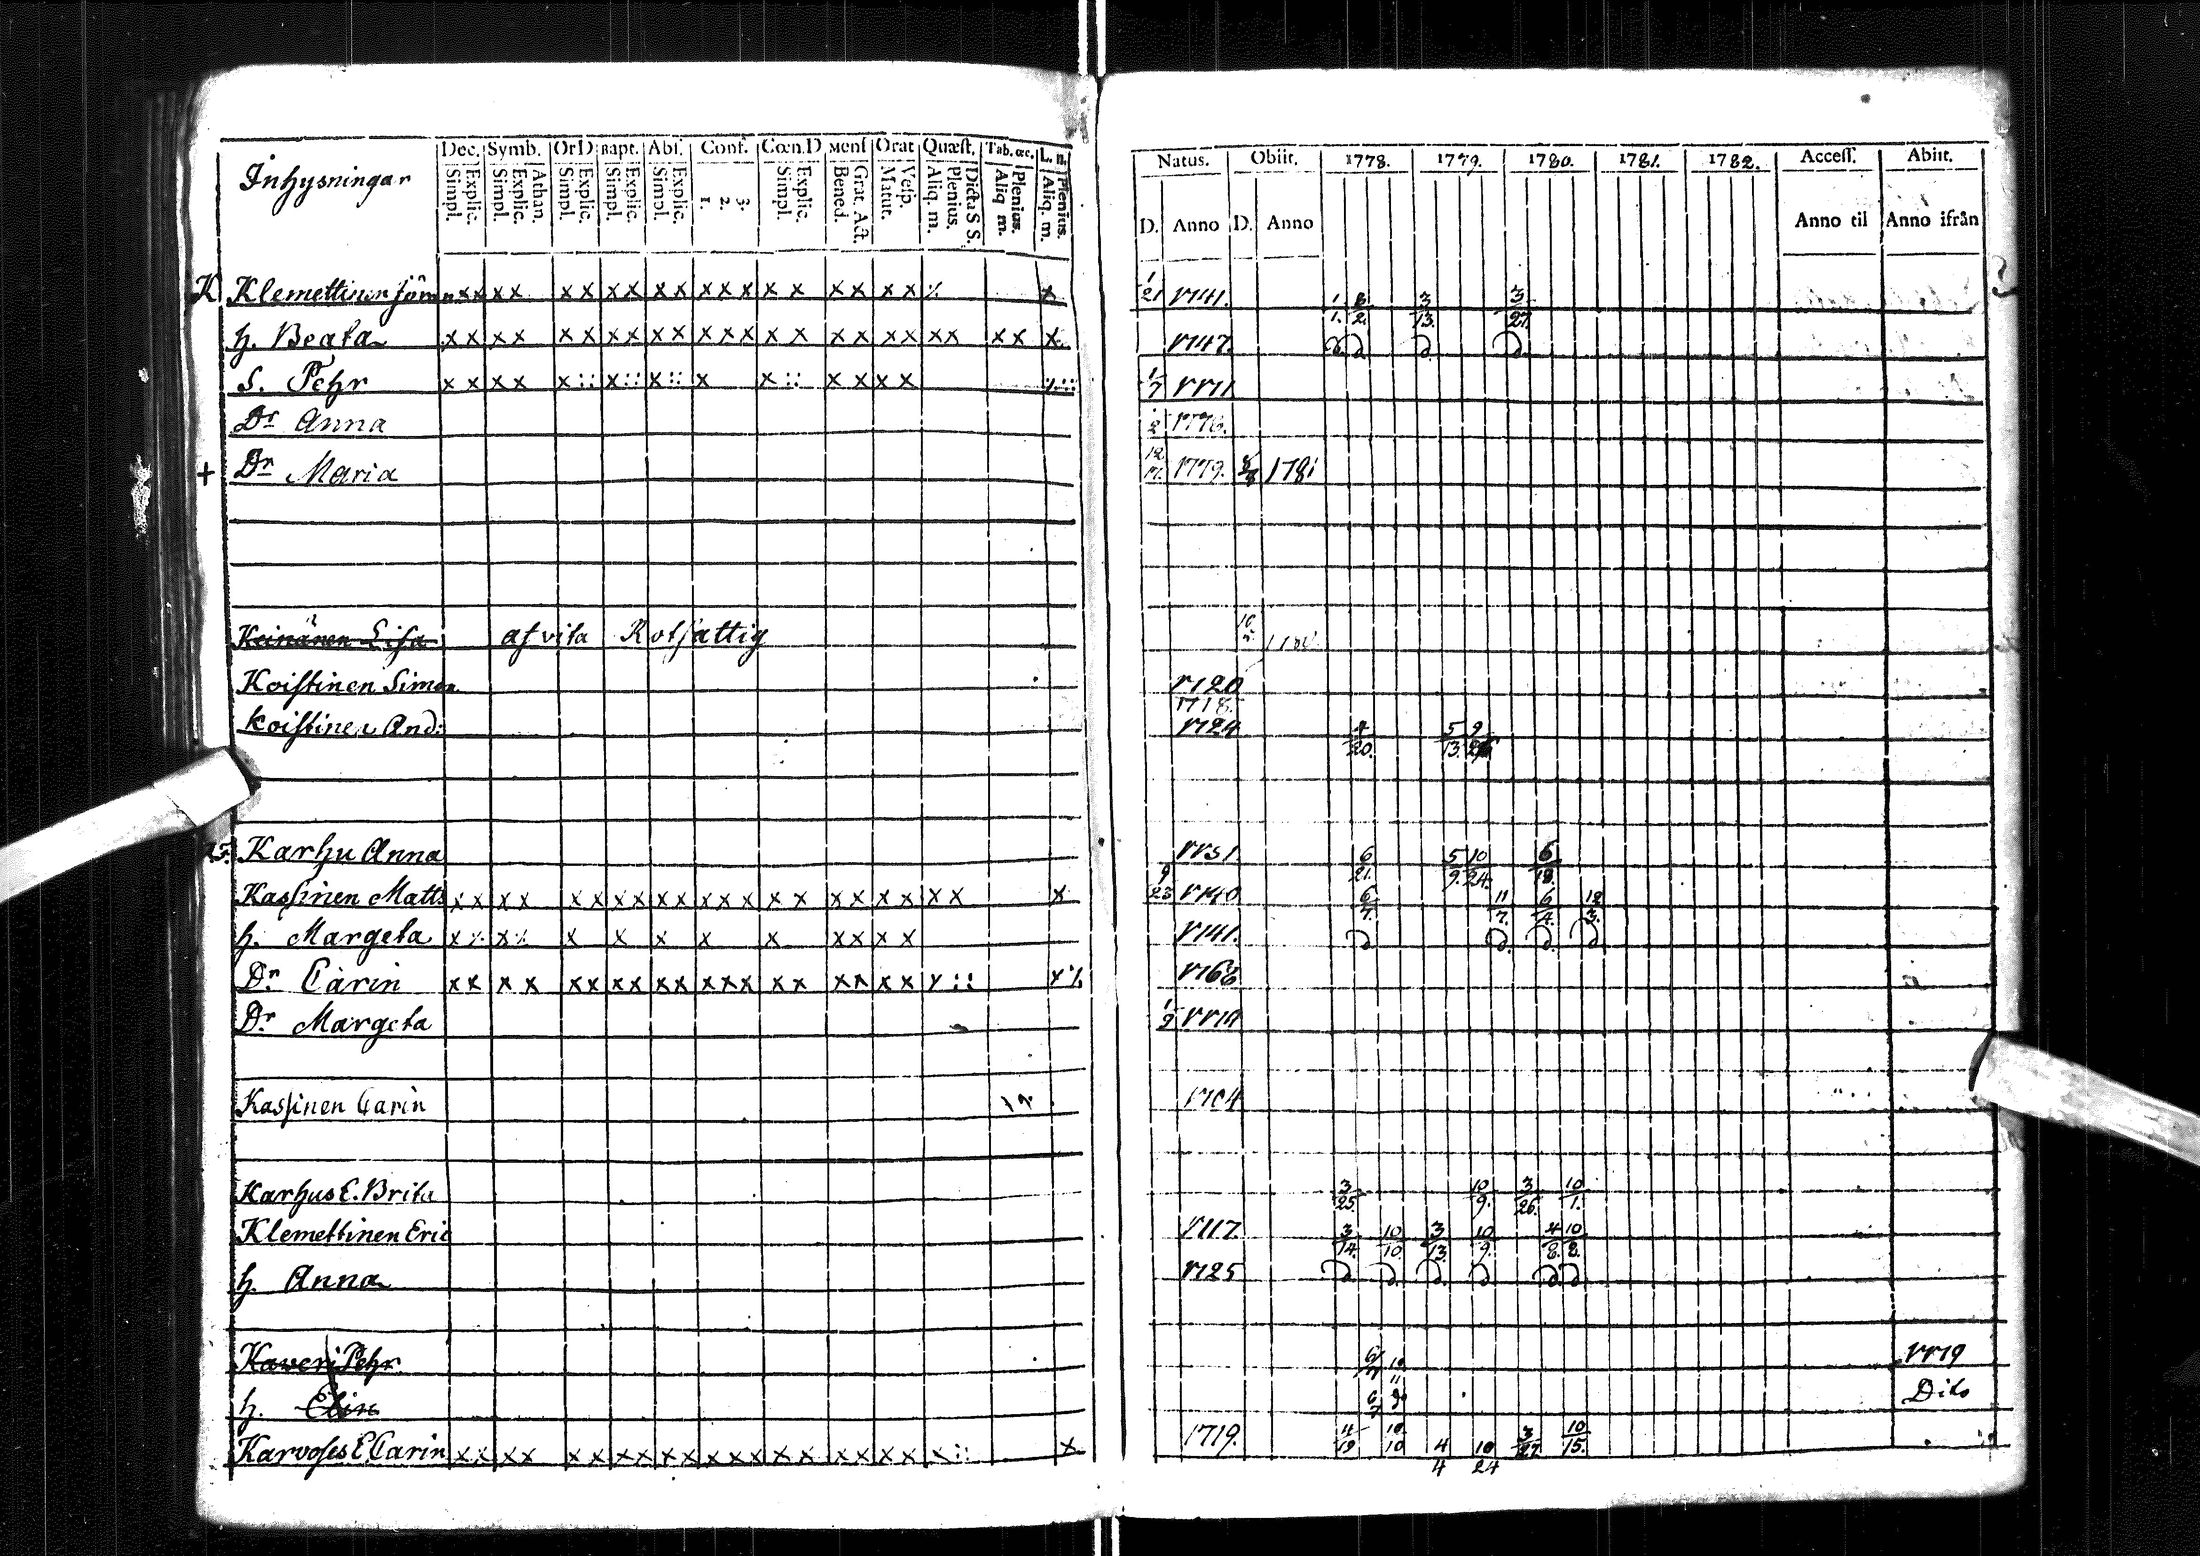 Inhysningar Dec. Symb. Or D Bapt. Abs. Conf. Cœn.D Mens Orat Quæst. Tab. œc. L. n. Natus. Obiit. 1778. 1779. 1780. 1781. 1782. Access. Abiit.
Simpl. Explic. Simpl. Explic. Athan. Simpl. Explic. Simpl. Explic. Simpl. Explic. 1. 2. 3. Simpl. Explic. Bened. Grat. Act. Matut. Vesp. Aliq. m. Plenius. Dicta S S. Aliq m. Plenius. Aliq. m. Plenius. D. Anno D. Anno Anno til Anno ifrån
K Klemettinen Jöran x x x x x x x x x x x x x x x x x x x x 1/21 1741. 1/1. 3/13. 3/27.
h. Beata x x x x x x x x x x x x x x x x x x x x x x x x x 1747. D D D D
S. Pehr x x x x x :: x :: x :: x x :: x x x x 1/7 1771
Dr Anna 1776.
+ Dr Maria 12/17. 1779. 1781
Keinänen Lisa afvita Rotfattig
Koistinen Simon 1720
1718.
Koistinen And: 1724 5/13. 9
Karhu Anna 1751. 6/21. 5/9. 10/24. 6/18.
Kassinen Matts x x x x x x x x x x x x x x x x x x x x x x 9/23 1740 6/7. 11/7. 6/4. 12/3.
h. Margeta x x x x x x x x x x x 1741. D D. D. D
Dr Carin x x x x x x x x x x x x x x x x x x x x ::
Dr Margeta 1/2
Kassinen Carin 1704
Karhus E. Brita 3/25. 10/9. 3/26. 10/1.
Klemettinen Eric 1717. 3/14. 10/10. 3/13. 10/9. 4/8. 10/8.
h. Anna 1725 D. D. D. D D. D.
Kaveri Pehr 6/7 10/11 1779
h. Elin 6/7 Dito
Karvoses E. Carin x x x x x x x x x x x x x x x x x x x x :: x 1719. 4/19 10/10 4/4 10/24 3/27 10/15.